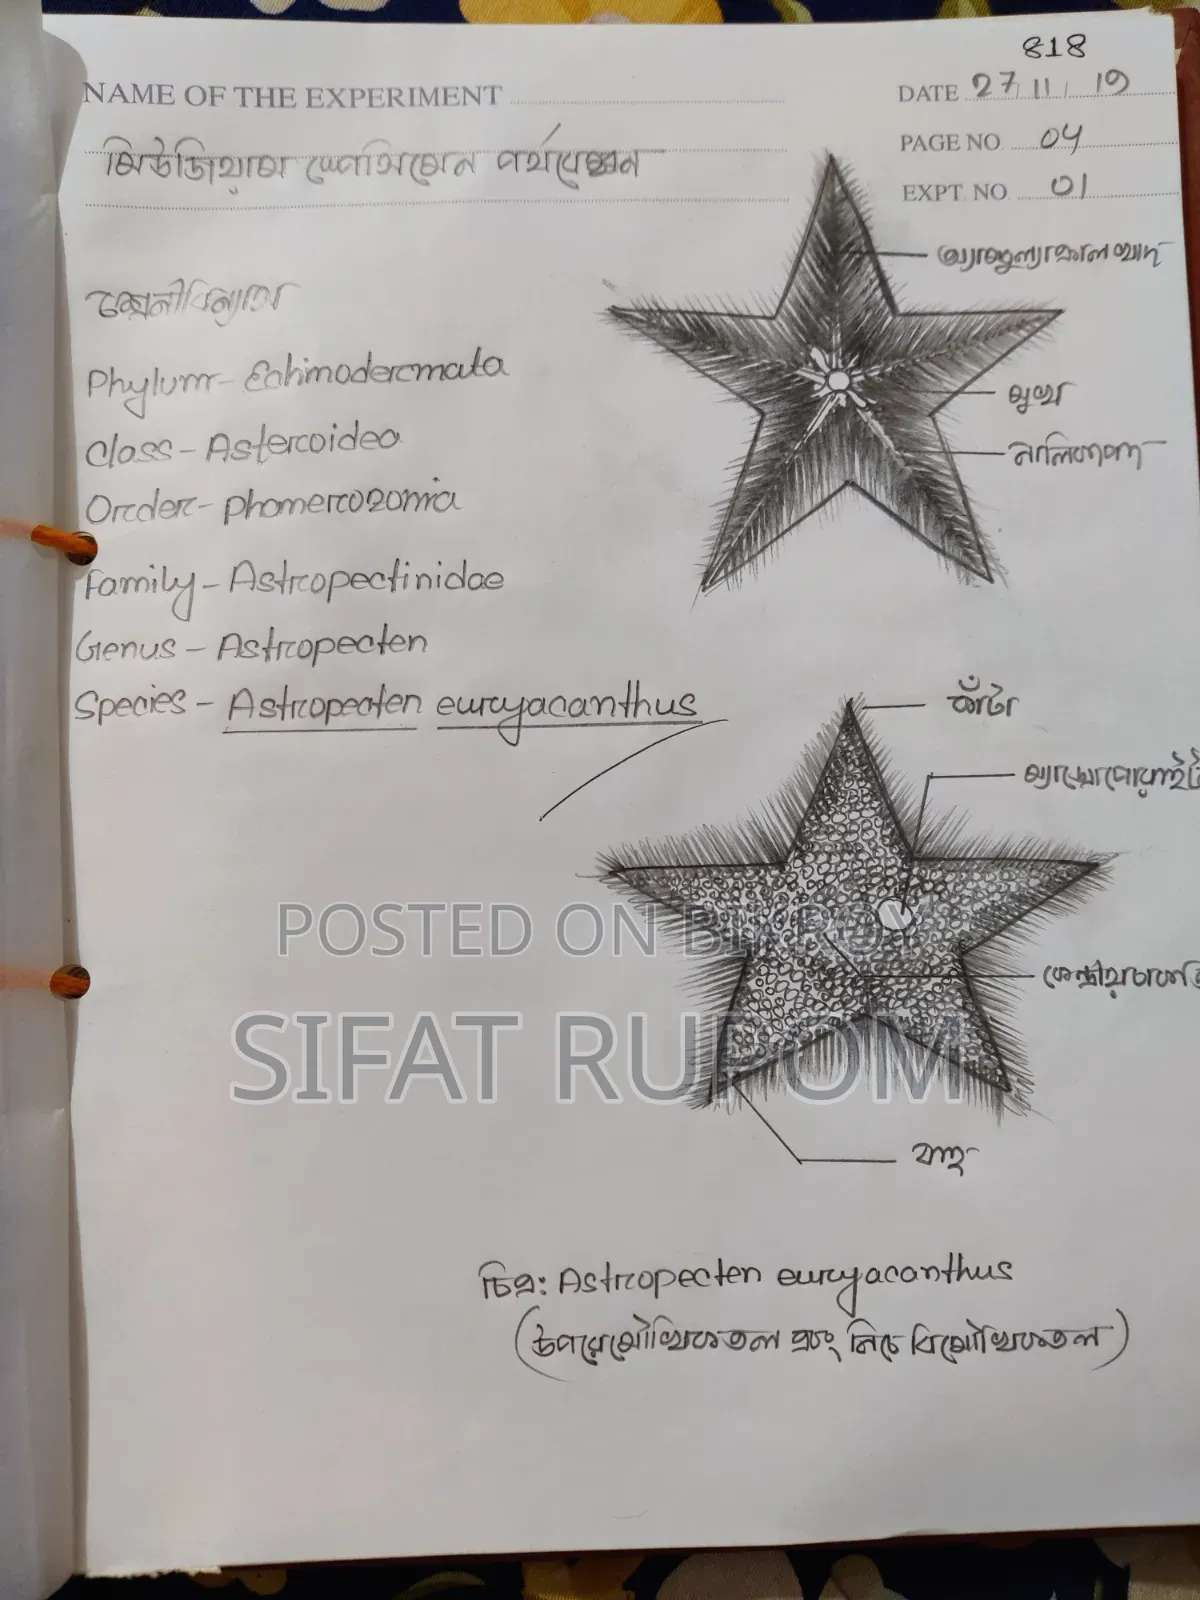 818
NAME OF THE EXPERIMENT
DATE 27/11/19
মিউজিয়াম স্পেসিমেন পর্যবেক্ষন
PAGE NO. 04
EXPT. NO. 01
অ্যাম্বুল্যাক্রাল খাদ
শ্রেনীবিন্যাস
Phylum - Echinodermata
মুখ
Class - Asteroidea
নালিকাপদ
Order - Phanerozonia
Family - Astropectinidae
Genus - Astropecten
Species - Astropecten euryacanthus
কাঁটা
ম্যাড্রেপোরাইট
POSTED ON BIKROY
কেন্দ্রীয় চাকতি
SIFAT RUPOM
বাহু
চিত্র: Astropecten euryacanthus
(উপরে মৌখিকতল এবং নিচে বিমৌখিকতল)